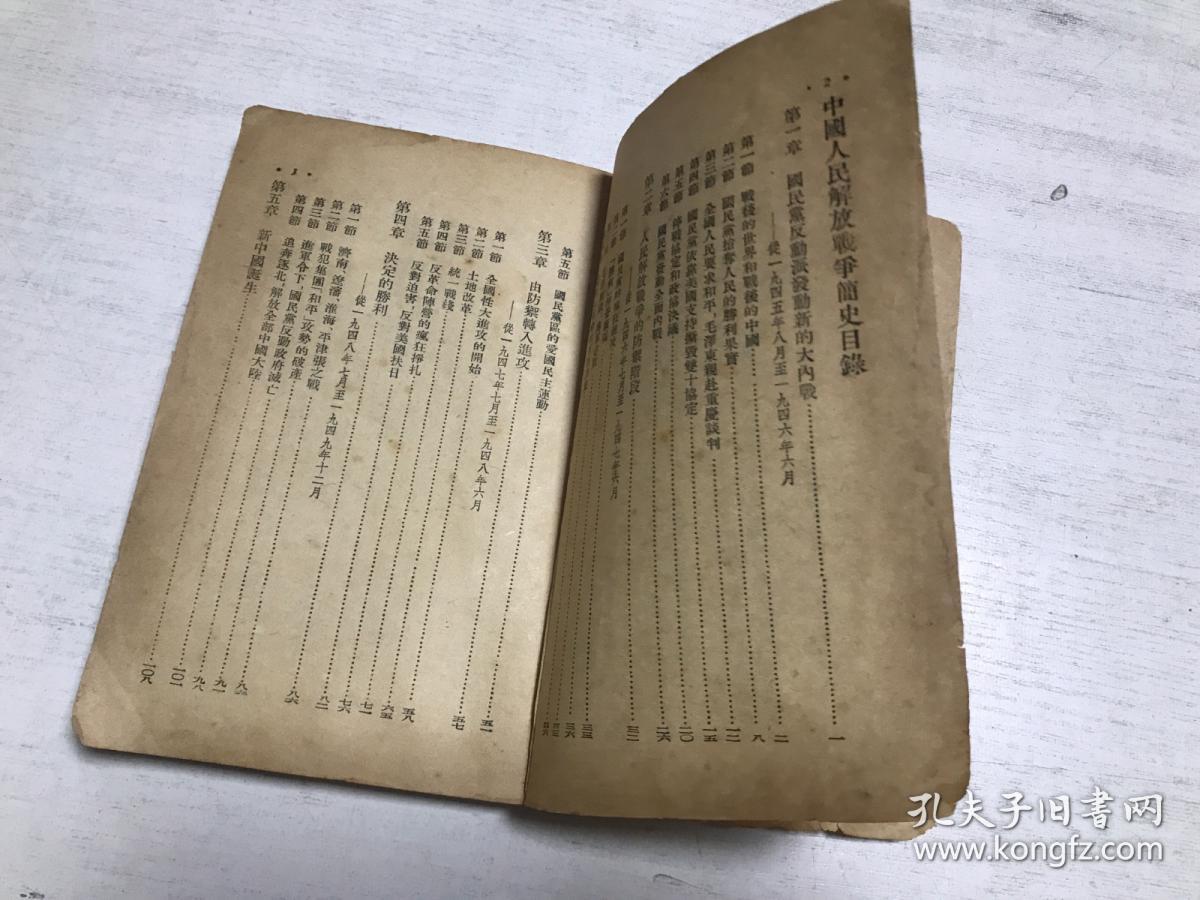 中國人民解放戰爭簡史目錄
第一章 國民黨反動派發動新的大內戰 一
——從一九四五年八月至一九四六年六月
第一節 戰後的世界和戰後的中國 二
第二節 國民黨搶奪人民的勝利果實 八
第三節 全國人民要求和平，毛澤東親赴重慶談判 一二
第四節 國民黨依靠美國支持撕毀雙十協定 一五
第五節 停戰協定和政協決議 二〇
第六節 國民黨發動全面內戰 二六
第二章 人民解放戰爭的防禦階段 三二
——從一九四六年七月至一九四七年六月
• 2 •
第五節 國民黨區的愛國民主運動
第三章 由防禦轉入進攻
——從一九四七年七月至一九四八年六月
第一節 全國性大進攻的開始 五一
第二節 土地改革 五七
第三節 統一戰綫
第四節 反革命陣營的瘋狂掙扎
第五節 反對迫害，反對美國扶日
第四章 決定的勝利
——從一九四八年七月至一九四九年十二月
第一節 濟南、遼瀋、淮海、平津張之戰
第二節 戰犯集團「和平」攻勢的破產
第三節 進軍令下，國民黨反動政府滅亡
第四節 追奔逐北，解放全部中國大陸
第五章 新中國誕生
五八
六五
七一
七六
八二
八六
九一
九八
一〇一
一〇八
孔夫子旧书网
www.kongfz.com